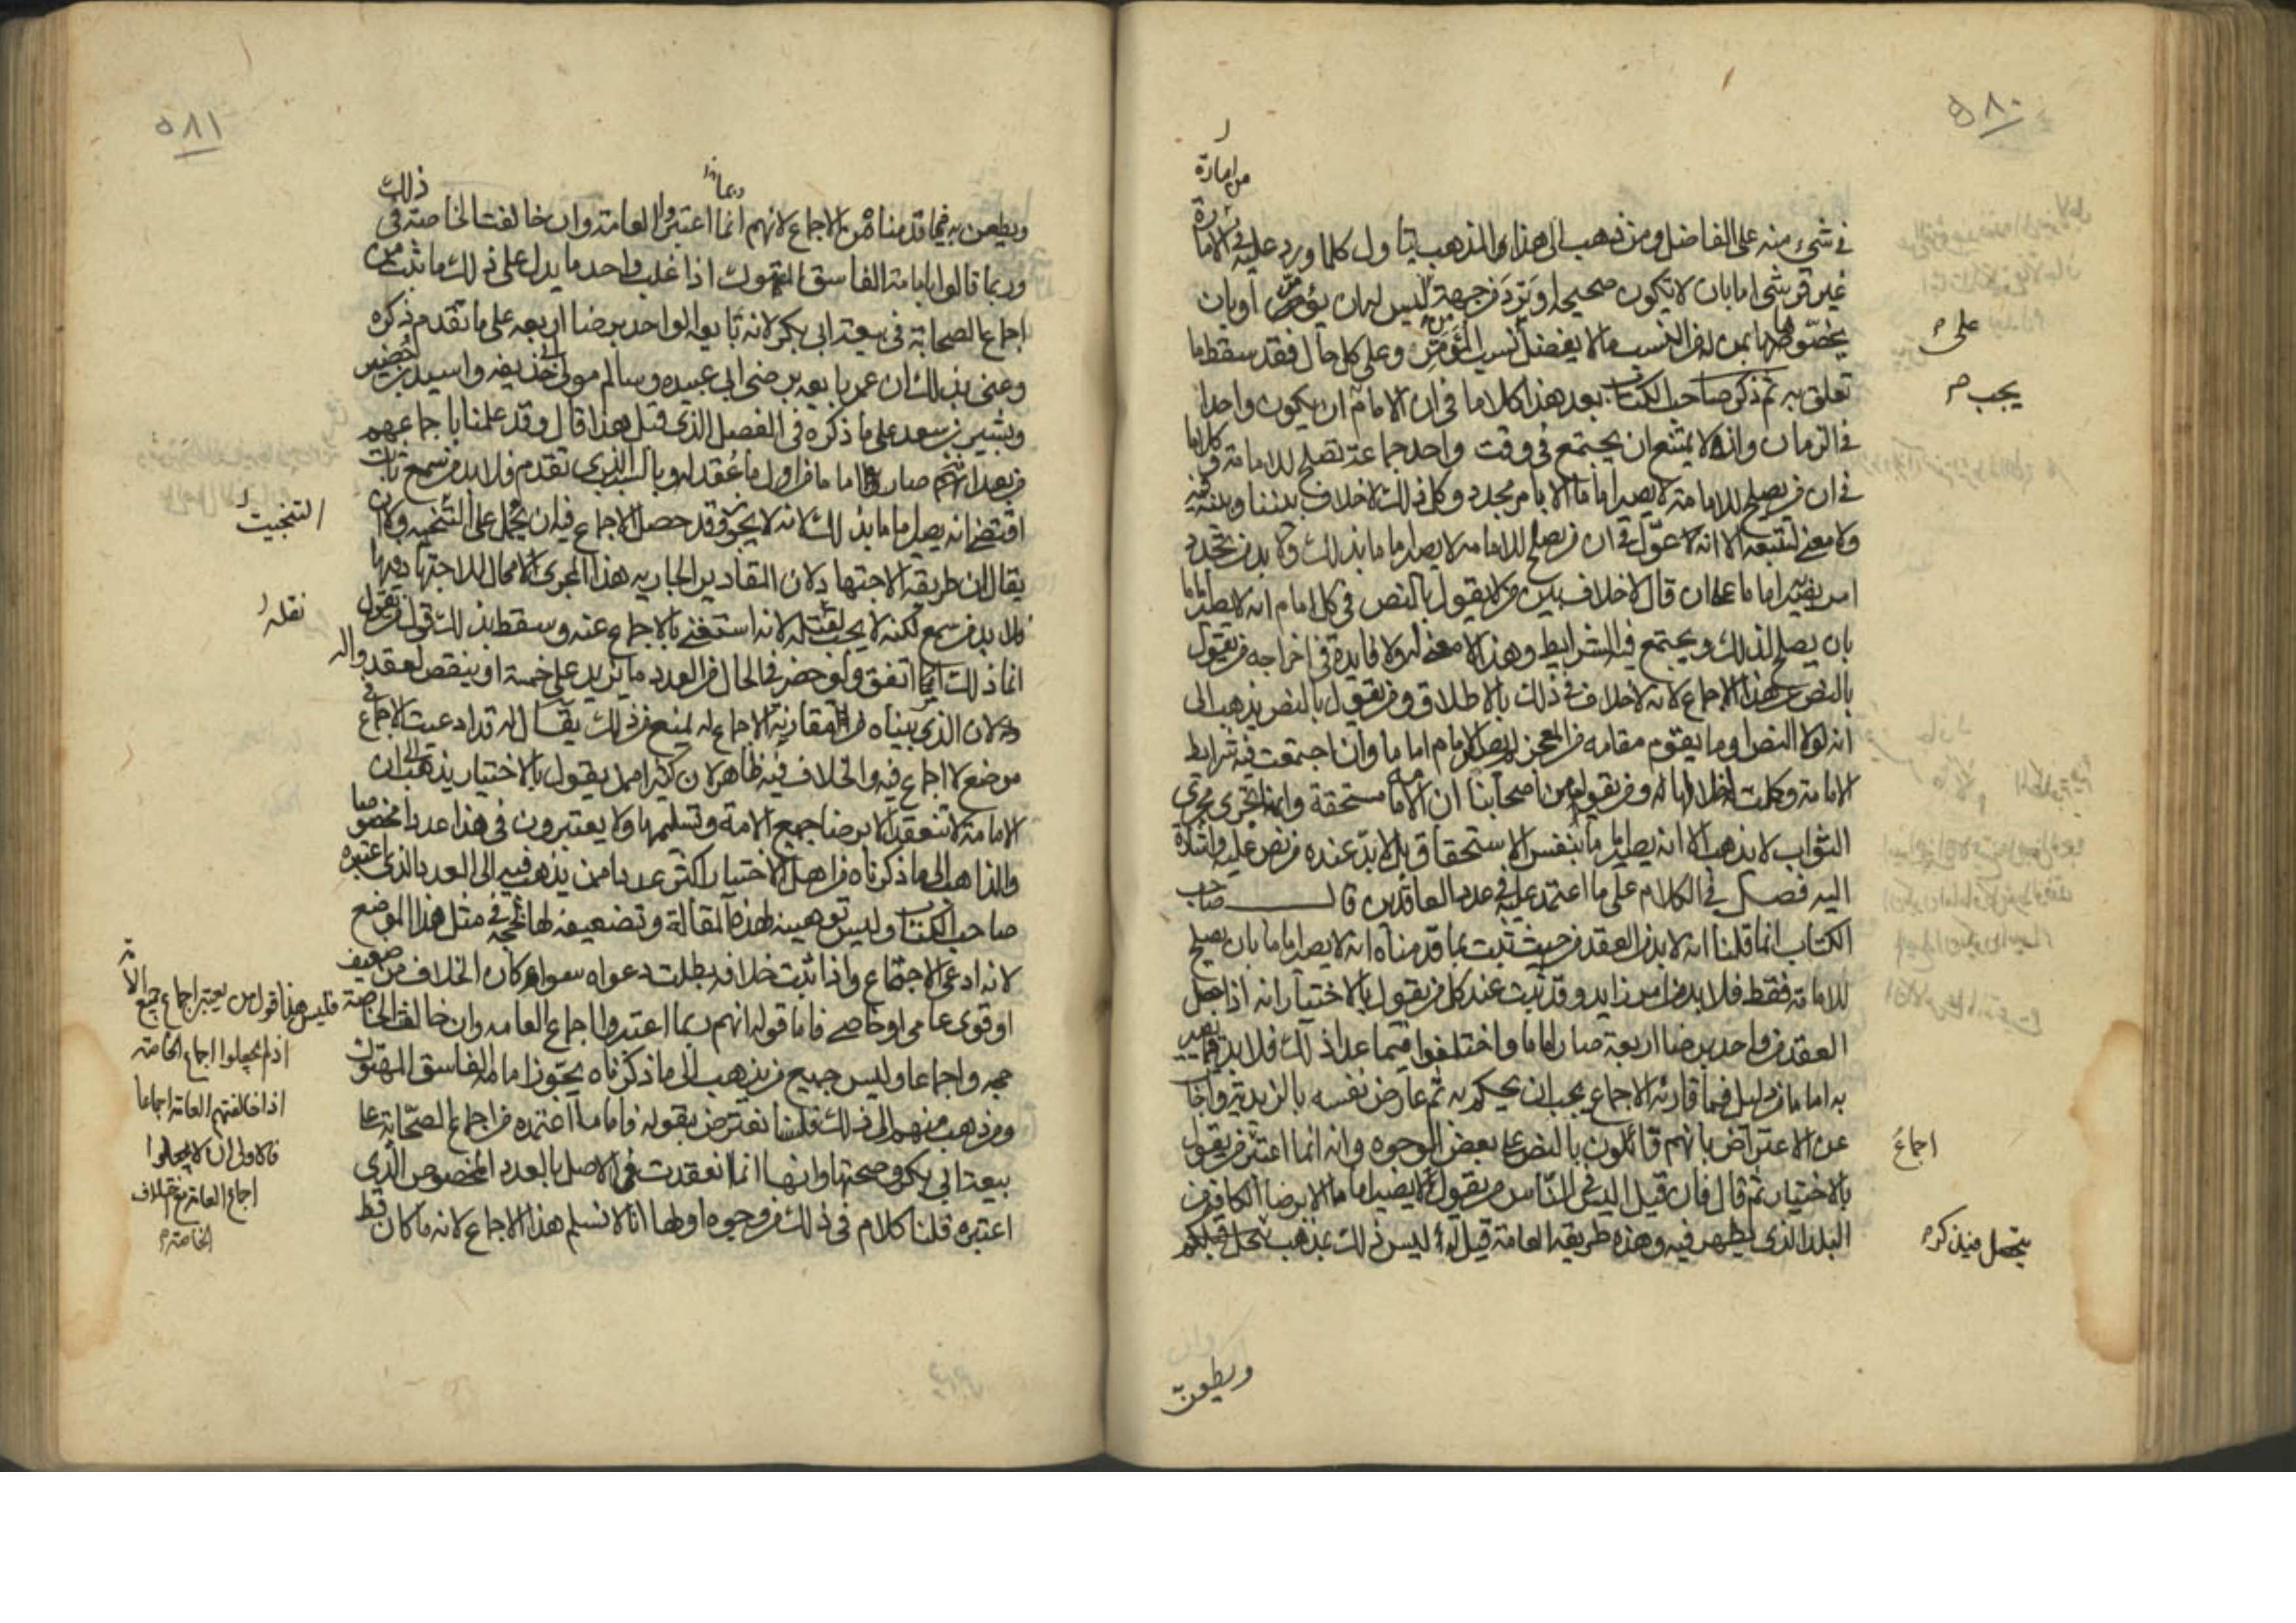 ٥٨٠
من امارة
في شيء منه على الفاضل ومن ذهب الى هذا المذهب يتاول كلما ورد عليه في الامارة
غير قرشي اما بان لا تكون صحيحا او ترد من جهة ليس له ان يؤمر او بان
يخصوا بها بمن له من النسب ما لا يفضل نسب المؤمر وعلى كل حال فقد سقط ما
على
تعلق به ثم ذكر صاحب الكتاب بعد هذا كلاما في ان الامام ان يكون واحدا
يجب
في الزمان وانه لا يمتنع ان يجتمع في وقت واحد جماعة تصلح للامامة وكلاما
في ان من يصلح للامامة لا يصير اماما الا بامر مجدد وكل ذلك لا خلاف بيننا وبينه فيه
ولا معنى لتتبعه الا انه عول في ان من يصلح للامامة لا يصير اماما بذلك ولا بد من تجدد
امر يصير اماما على ان قال لا خلاف بين من لا يقول بالنص في كل امام انه لا يصير اماما
بان يصلح لذلك ويجتمع فيه الشرايط وهذا لا معنى له ولا فايدة في اخراجه من يقول
بالنص عن هذا الاجماع لانه لا خلاف في ذلك بالاطلاق ومن يقول بالنص يذهب الى
انه لولا النص او ما يقوم مقامه من المعجز لم يصر الامام اماما وان اجتمعت فيه شرايط
الامامة وكملت خلالها له ومن يقول من اصحابنا ان الامامة مستحقة وانها تجري مجرى
الثواب لا يذهب الا انه يصير اماما بنفس الاستحقاق بل لا بد عنده من نص عليه واشارة
اليه فصل في الكلام على ما اعتمد عليه في عدد العاقدين قال صاحب
الكتاب انما قلنا انه لا بد من العقد من حيث ثبت بما قدمناه انه لا يصير اماما بان يصلح
للامامة فقط فلا بد من امر زايد وقد ثبت عند كل من يقول بالاختيار انه اذا حصل
العقد من واحد برضا اربعة صار اماما واختلفوا فيما عدا ذلك فلا بد فيما يصير
به اماما من دليل فما قارنه الاجماع يجب ان يحكم به ثم عارض نفسه بالزيدية واجاب
عن الاعتراض بانهم قائلون بالنص على بعض الوجوه وانه انما اعتبر من يقول
اجماع
بالاختيار ثم قال فان قيل اليس في الناس من يقول لا يصير اماما الا برضا الكافة من
البلد الذي يظهر فيه وهذه طريقة العامة قيل له ليس ذلك بمذهب
ويطعن
٥٨١
ويطعن به فيما قدمناه من الاجماع لانهم انما اعتبروا العامة وان خالفت الخاصة في ذلك
وربما قالوا بامامة الفاسق المتهوك اذا غلب واحد ما يدل على ذلك ما ثبت من
اجماع الصحابة في بيعة ابي بكر لانه بايعه الواحد برضا اربعة على ما تقدم ذكره
وعنى بذلك ان عمر بايعه برضى ابي عبيده وسالم مولى ابي حذيفه واسيد بن حضير
وبشير بن سعد على ما ذكره في الفصل الذي قبل هذا قال وقد علمنا باجماعهم
من بعد انه صار اماما من اول ما عقد له وبالسبب الذي تقدم فلا بد من سمع ثابت
اقتضى انه يصير اماما بذلك لانه لا يجوز وقد حصل الاجماع فيه ان يحمل على التنخيب ولا ان
التبخيت
يقال ان طريقه الاجتهاد لان المقادير الجارية هذا المجرى لا مجال للاجتهاد فيها
فلا بد من سمع لكنه لا يجب نقله لانه استغنى بالاجماع عنه وسقط بذلك قول من يقول
نقله
انما ذلك اتفق ولو حضر في الحال من العدد ما يزيد على خمسة او ينقص لعقدوا له
لان الذي بيناه من مقارنة الاجماع له يمنع من ذلك يقال له قد ادعيت الاجماع في
موضع لا اجماع فيه والخلاف فيه ظاهر لان كثيرا ممن يقول بالاختيار يذهب الى ان
الامامة لا تنعقد الا برضا جميع الامة وتسليمها ولا يعتبرون في هذا عددا مخصوصا
والذاهب الى ما ذكرناه من اهل الاختيار اكثر عددا ممن يذهب فيه الى العدد الذي اعتبره
صاحب الكتاب وليس توهينه لهذه المقالة وتضعيفه لها بحجة في مثل هذا الموضع
لانه ادعى الاجماع واذا ثبت خلافه بطلت دعواه سواء كان الخلاف من ضعيف
او قوى عامي او خاصي فاما قوله انهم ربما اعتبروا اجماع العامه وان خالف الخاصة
حجه واجماعا وليس جميع من يذهب الى ما ذكرناه يجوز امامة الفاسق المتهتك
ومن ذهب منهم الى ذلك فلسنا نعترض بقوله فاما ما اعتمده من اجماع الصحابة على
بيعة ابي بكر وصحتها وانها انما انعقدت في الاصل بالعدد المخصوص الذي
اعتبره قلنا كلام في ذلك من وجوه اولها انا لا نسلم هذا الاجماع لانه ما كان قط
فليس هذا قول من يعتبر اجماع جميع الامة
اذ لم يجعلوا اجماع الخاصة
اذا خالفتهم العامة اجماعا
فالاولى ان لا يجعلوا
اجماع العامة مع خلاف
الخاصة